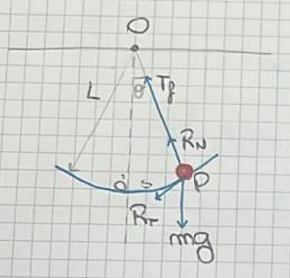 O
L
θ
T_f
R_N
O
s
P
R_T
mg